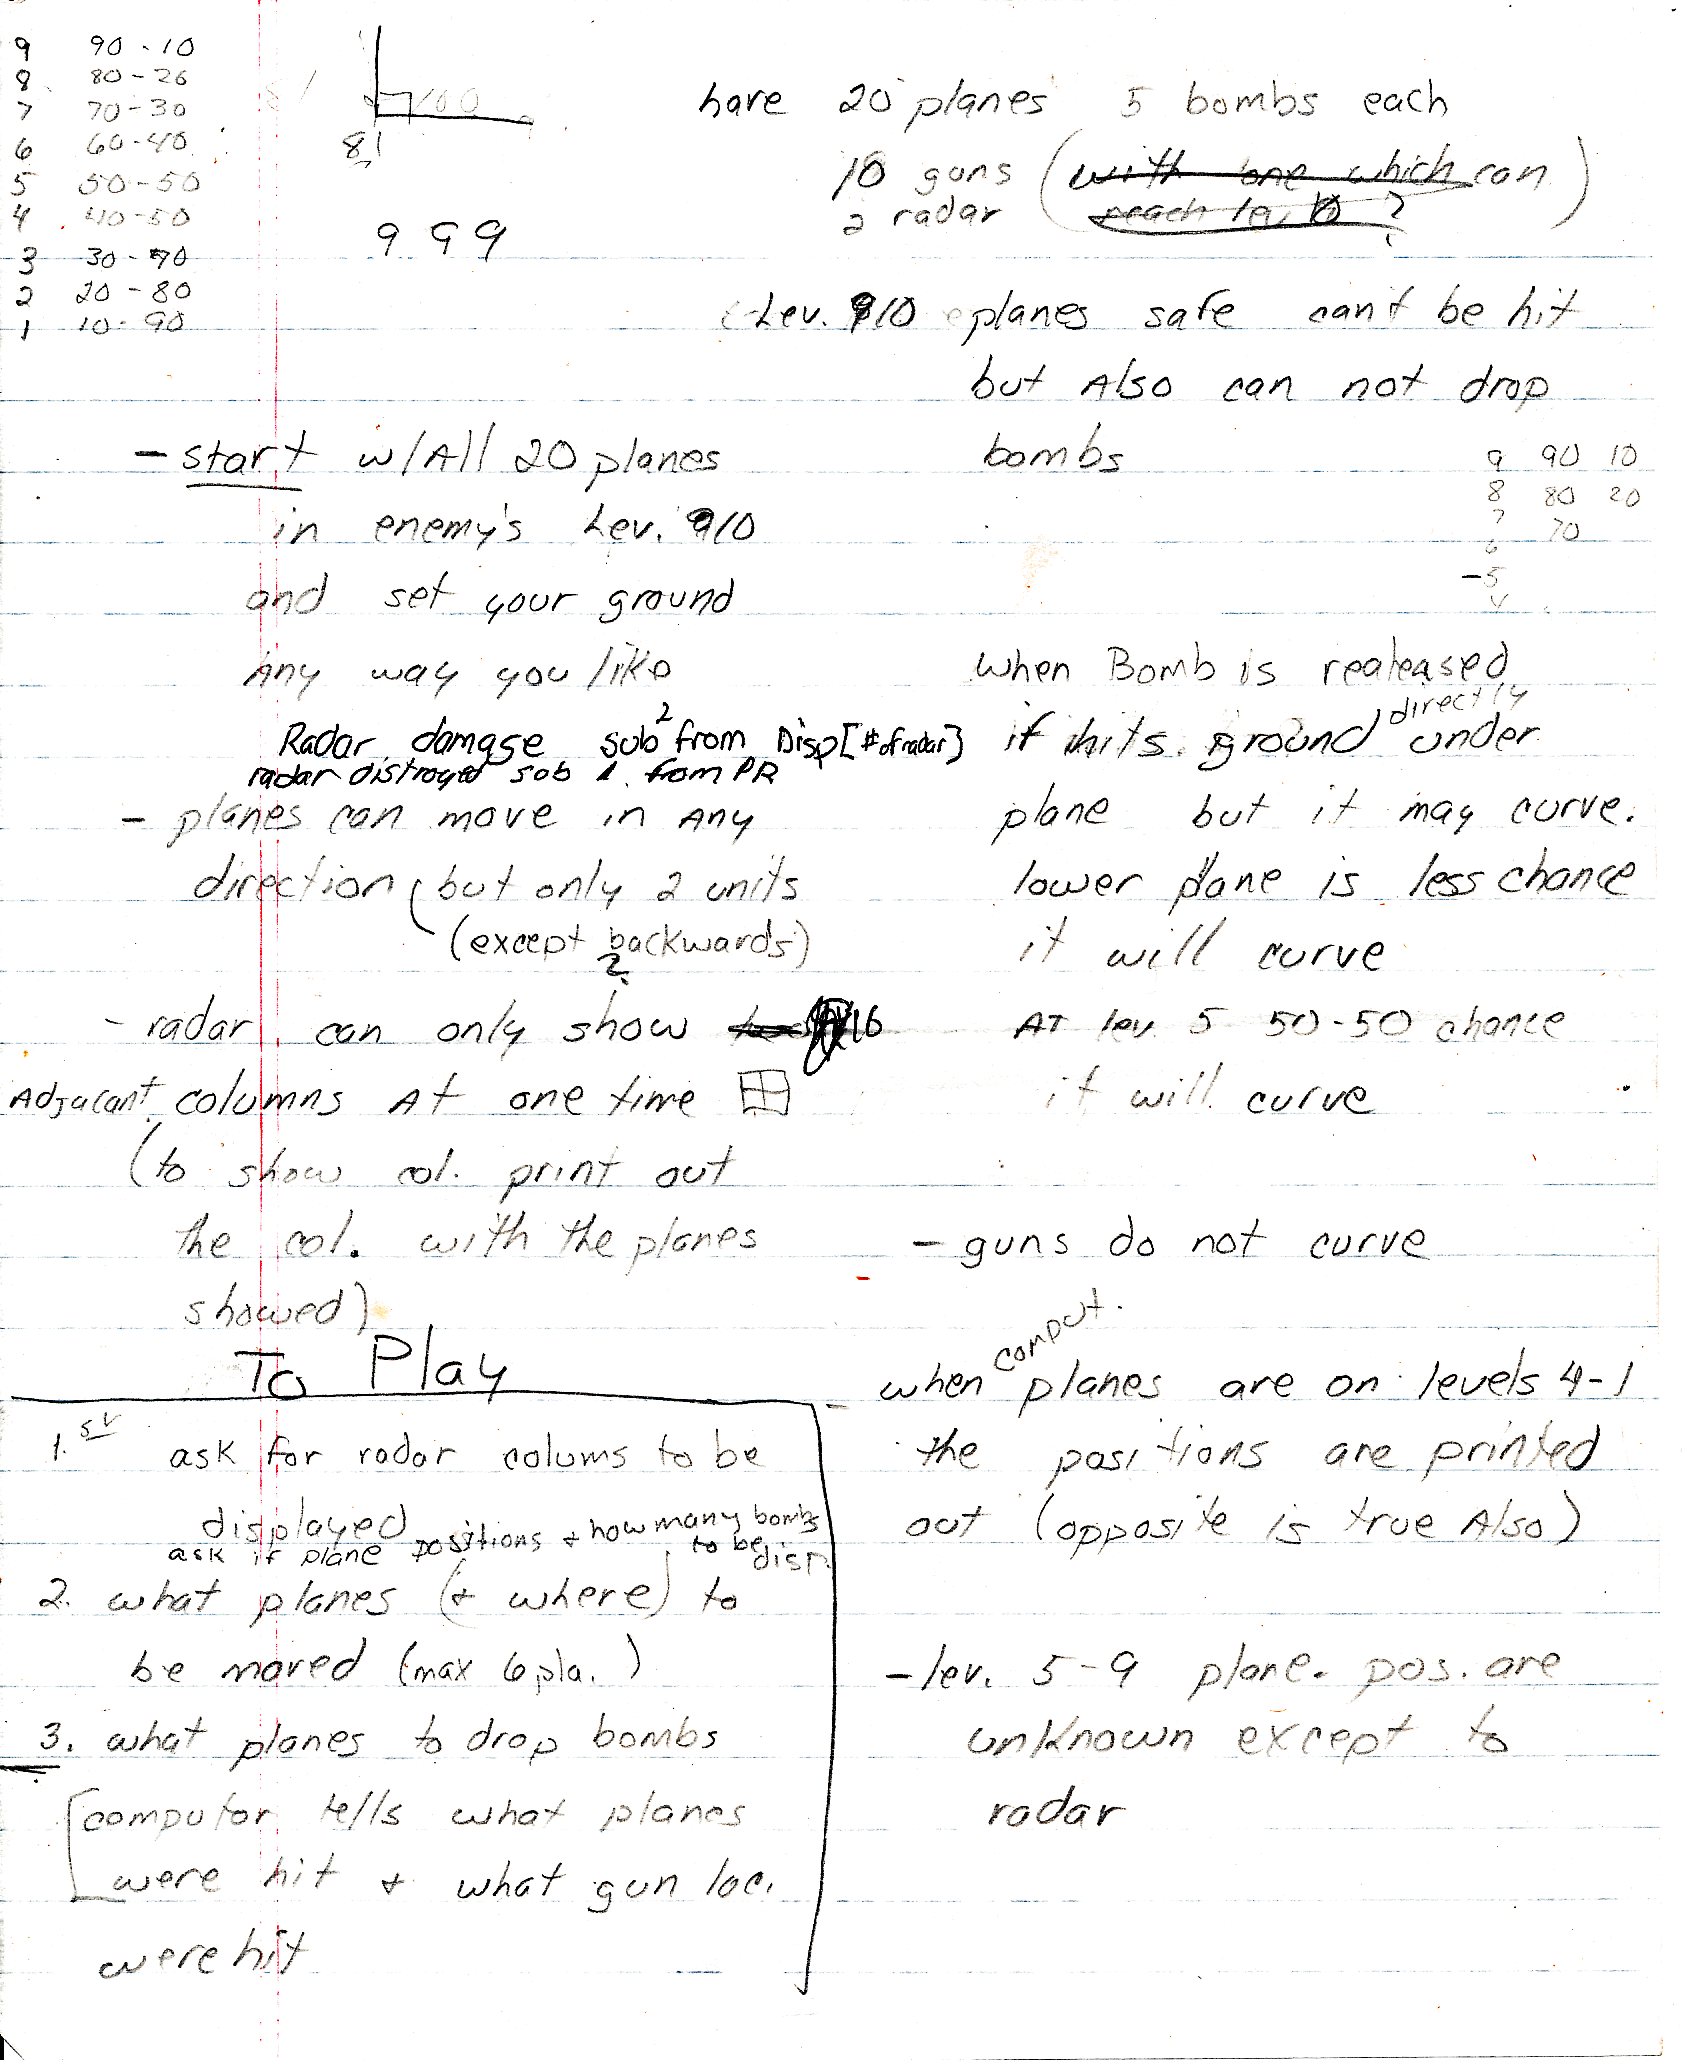 9 90 - 10
8 80 - 26
7 70 - 30
6 60 - 40
5 50 - 50
4 40 - 50
3 30 - 70
2 20 - 80
1 10 - 90
81
9 9 9
have 20 planes 5 bombs each
10 guns (with one which can)
2 radar reach lev 10 ?
Lev. 10 planes safe can't be hit
but Also can not drop
bombs
9 90 10
8 80 20
7 70
6
-5
4
- start w/All 20 planes
in enemy's Lev. 10
and set your ground
Any way you like
Radar damage sub 2 from Disp[# of radar]
radar distroyed sub 1 from PR
- planes can move in Any
direction (but only 2 units
(except backwards)
?
- radar can only show 16
Adjacant columns At one time
(to show col. print out
the col. with the planes
showed)
when Bomb is realeased
it hits ground directly under
plane but it may curve.
lower plane is less chance
it will curve
AT lev 5 50-50 chance
it will curve
- guns do not curve
when comput. planes are on levels 4-1
the positions are printed
out (opposite is true Also)
- lev. 5-9 plane. pos. are
unknown except to
radar
To Play
1.st ask for radar colums to be
displayed
ask if plane positions + how many bombs
to be disp.
2. what planes (+ where) to
be moved (max 6 pla. )
3. what planes to drop bombs
[computor tells what planes
were hit + what gun loc.
were hit